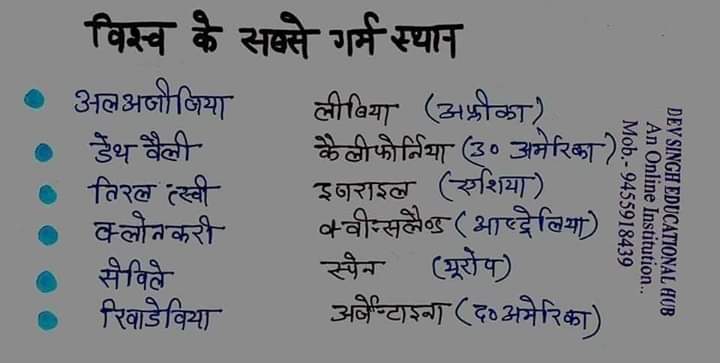 विश्व के सबसे गर्म स्थान
अलअजीजिया लीबिया (अफ्रीका)
डेथ वैली कैलीफोर्निया (उ० अमेरिका)
तिरल त्स्वी इजराइल (एशिया)
क्लोनकरी क्वीन्सलैण्ड (आष्ट्रेलिया)
सेविले स्पेन (यूरोप)
रिवाडेविया अर्जेन्टाइना (द० अमेरिका)
DEV SINGH EDUCATIONAL HUB
An Online Institution..
Mob.- 9455918439